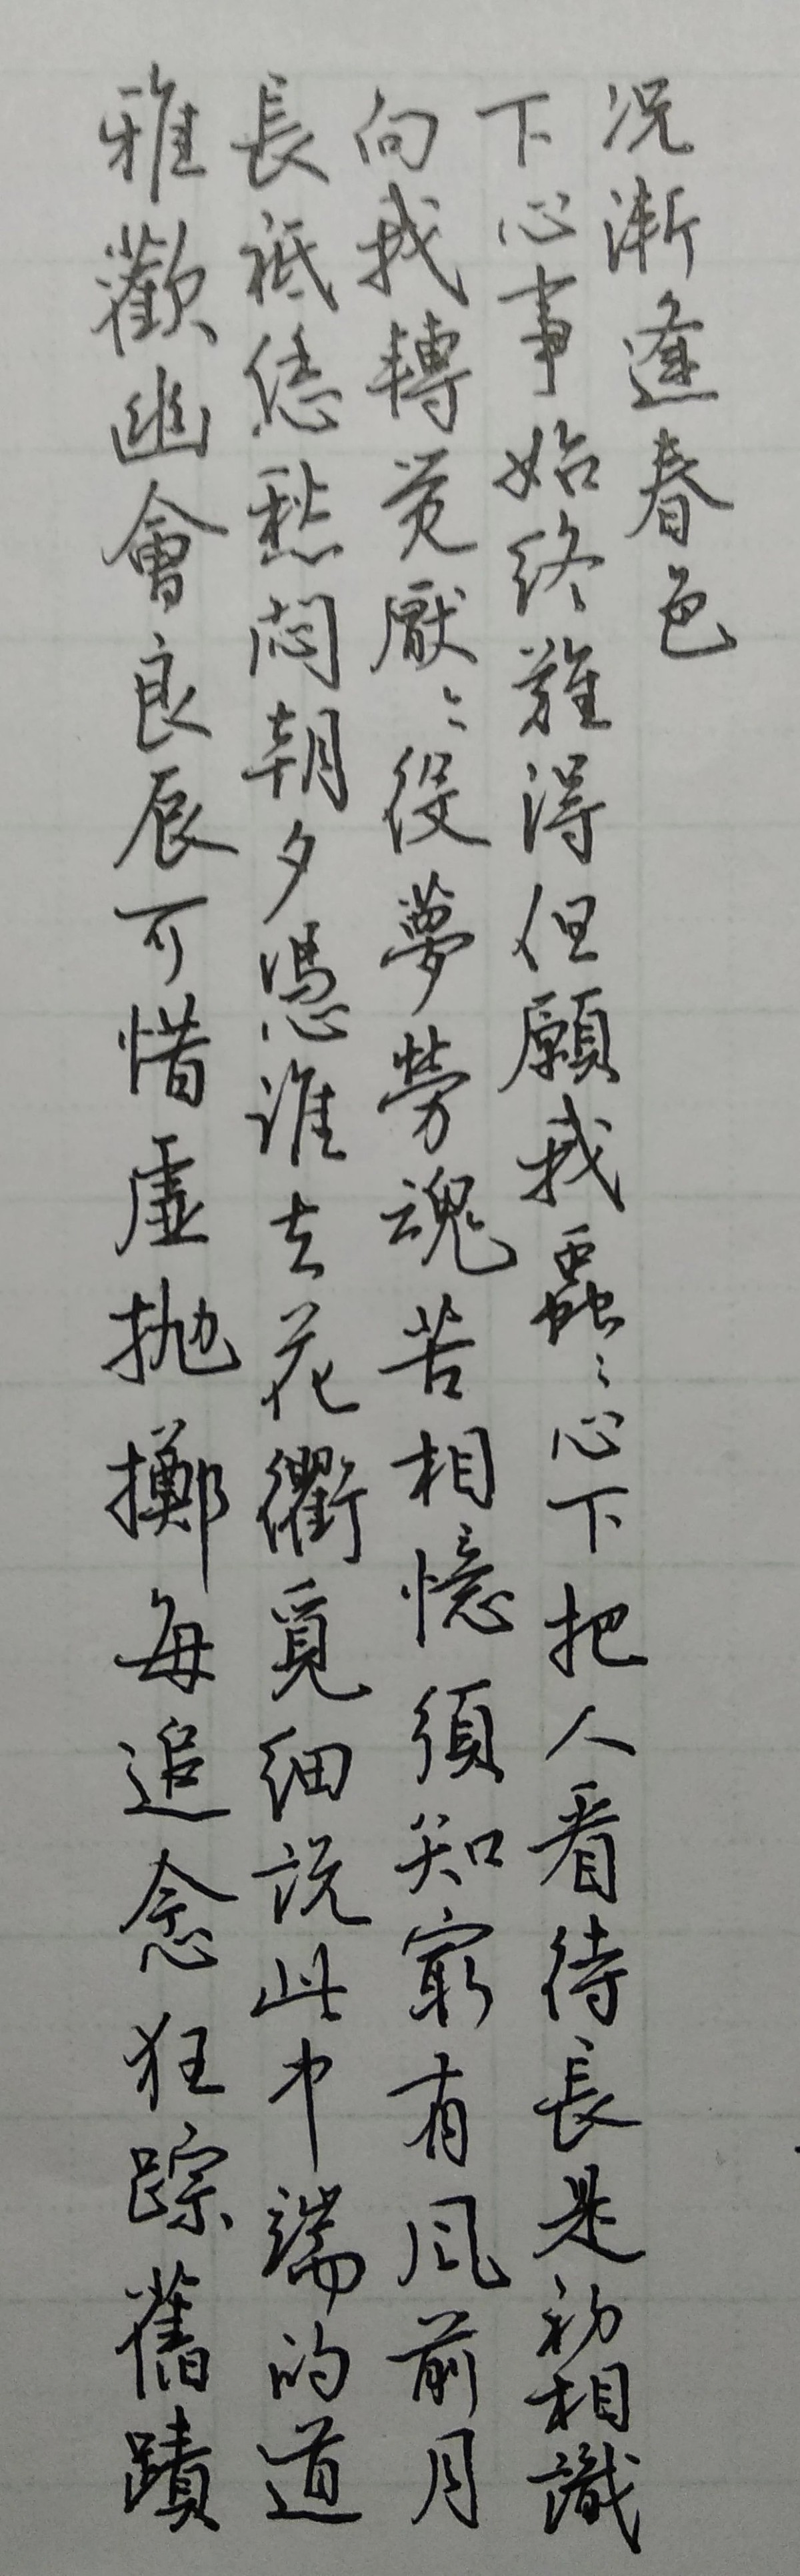 雅歡幽會良辰可惜虛抛擲每追念狂踪舊蹟
長祗恁愁悶朝夕憑誰去花衢覓細説此中端的道
向我轉覚厭〻役夢勞魂苦相憶須知㝡有風前月
下心事始終難得但願我蟲〻心下把人看待長是初相識
況漸逢春色